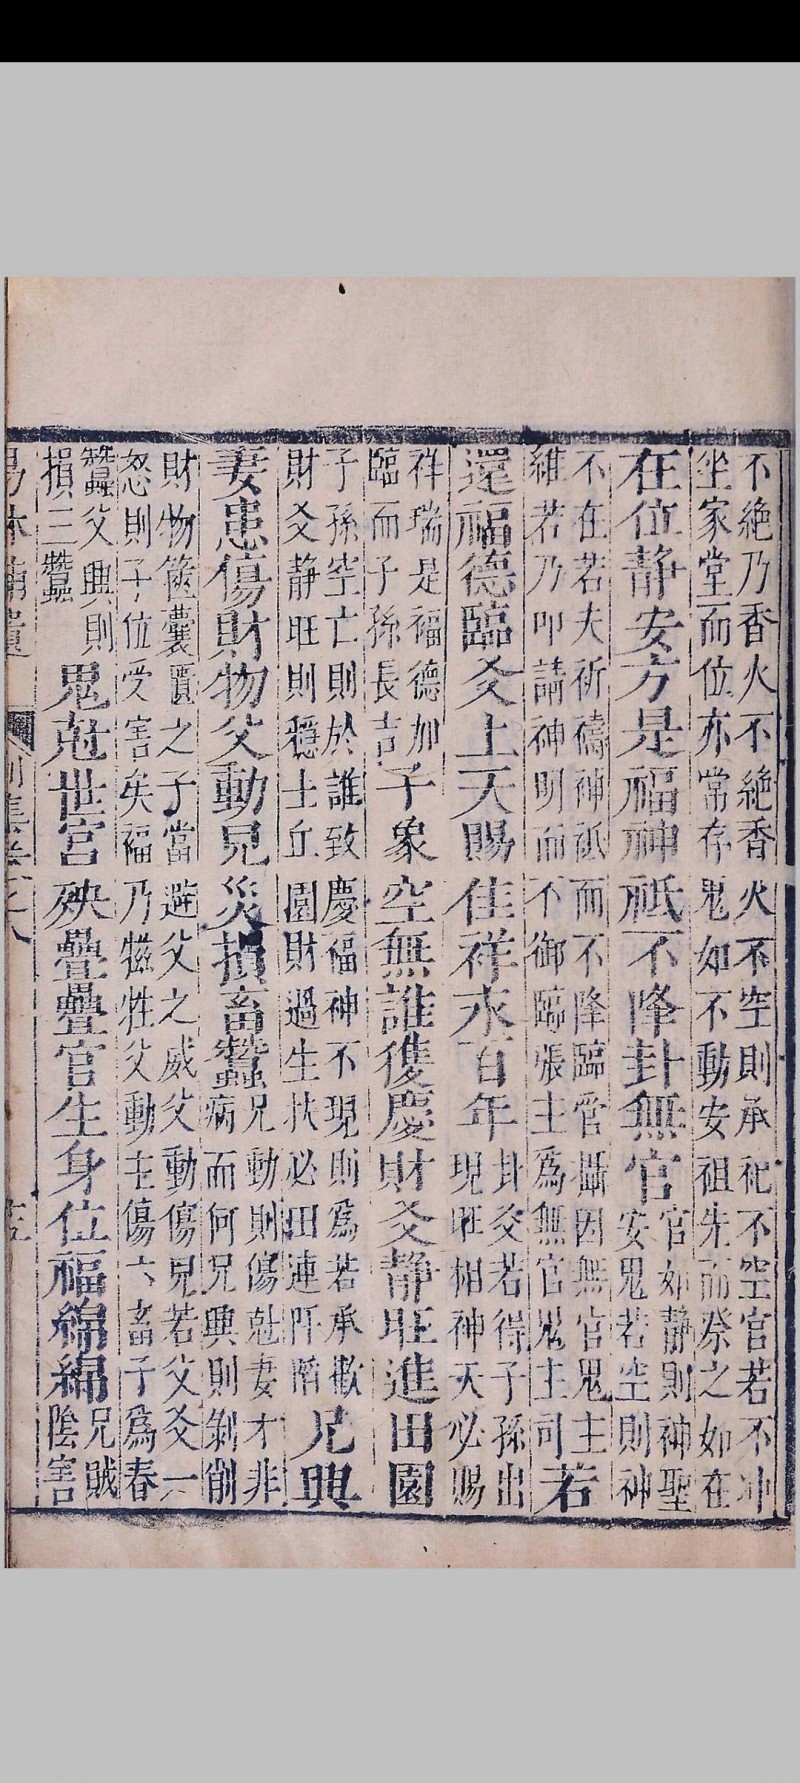 不絶乃香火不絶香火不空則承祀不空官若不冲
坐家堂而位亦常存鬼如不動安祖先而祭之如在
在位靜安方是福神祇不降卦無官
官如靜則神聖
安鬼若空則神
不在若夫祈禱神祇而不降臨官攝因無官鬼主
維若乃叩請神明而不御臨張主為無官鬼主司
若
還福德臨爻上天賜佳祥永百年
卦爻若得子孫出
現旺相神天必賜
祥瑞是福德加
臨而子孫長吉
子象空無誰獲慶財爻靜旺進田園
子孫空亡則於誰致慶福神不現則為若承歡
財爻靜旺則穩土丘園財過生扶必田連阡陌
兄興
妻患傷財物父動兒災損畜蠶
兄動則傷尅妻才非
病而何兄興則剝削
財物篋囊匱之子當避父之威父動傷兒若父爻一
忽則子位受害矣福乃犧牲父動主傷六畜子為春
蠶父興則
損三蠶
鬼尅世宮殃疊疊官生身位福綿綿
兄賊
陰害